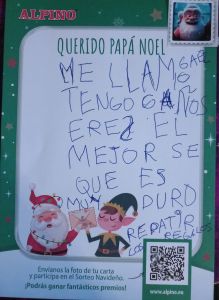 ALPINO
QUERIDO PAPÁ NOEL
ME LLAMO
GAEL
TENGO 6 AÑOS
ERES EL
MEJOR SE
QUE ES
MUY DURO
REPATIR
LOS REGALOS
Envíanos la foto de tu carta
y participa en el Sorteo Navideño.
¡Podrás ganar fantásticos premios!
www.alpino.es